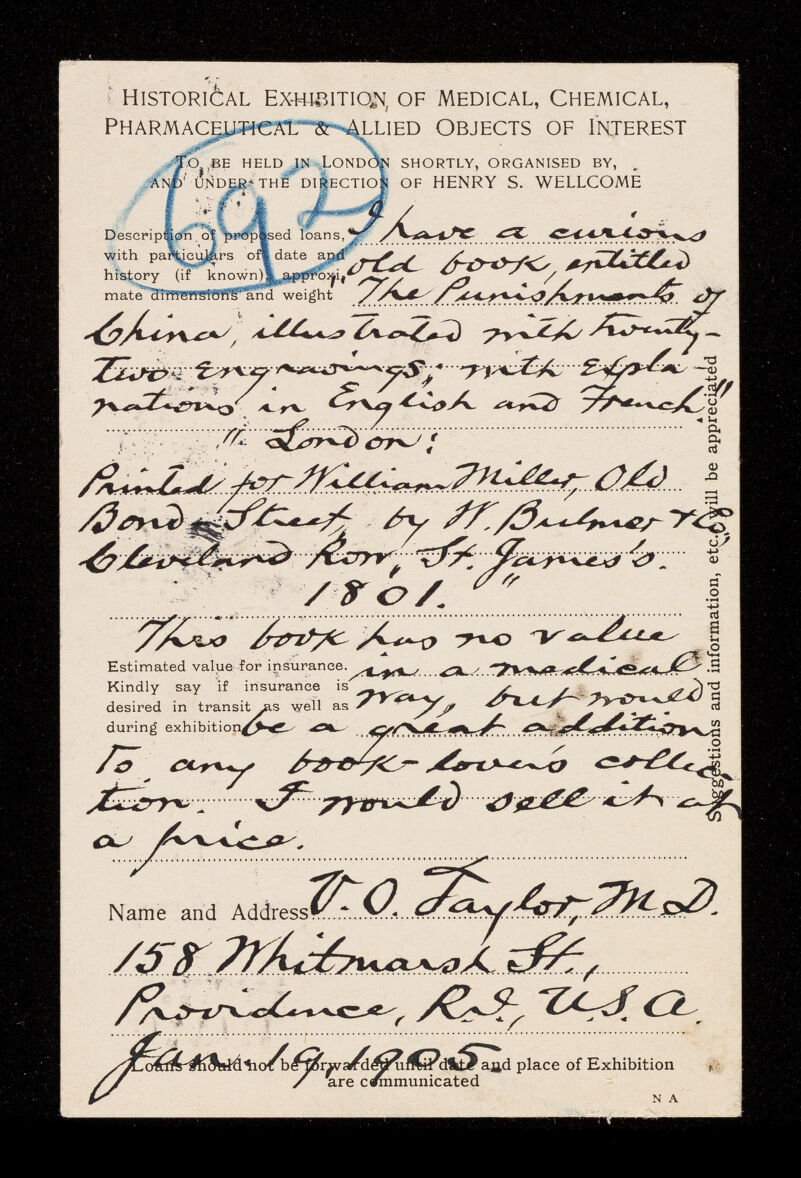 HISTORICAL EXHIBITION OF MEDICAL, CHEMICAL,
PHARMACEUTICAL & ALLIED OBJECTS OF INTEREST
TO BE HELD IN LONDON SHORTLY, ORGANISED BY,
AND UNDER THE DIRECTION OF HENRY S. WELLCOME
692
Description of proposed loans,
with particulars of date and
history (if known), approxi-
mate dimensions and weight
I have a curious
old book, entitled
"The Punishments of
China, illustrated with twenty-
two engravings; with expla-
nations in English and French."
"London:
Printed for William Miller, Old
Bond Street, by W. Bulmer & Co,
Cleveland Row, St. James's.
1801."
This book has no value
Estimated value for insurance.
Kindly say if insurance is
desired in transit as well as
during exhibition
in a medical
way, but would
be a great addition
to any book-lover's collec-
tion. I would sell it at
a price.
Suggestions and information, etc., will be appreciated
Name and Address V. O. Taylor, M.D.
158 Whitmarsh St.,
Providence, R.I., U.S.A.
Jan. 19, 1905.
Loans should not be forwarded until date and place of Exhibition
are communicated
N A